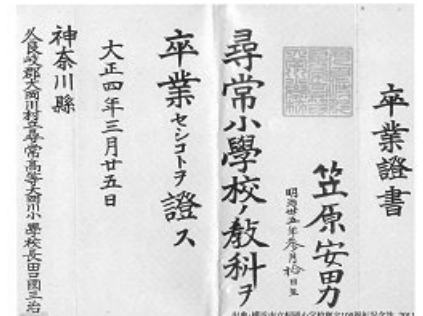 卒業證書
笠原安男
明治廿五年参月拾日生
尋常小學校ノ教科ヲ
卒業セシコトヲ證ス
大正四年三月廿五日
神奈川縣
久良岐郡大岡川村立尋常高等大岡川小學校長田口國三治